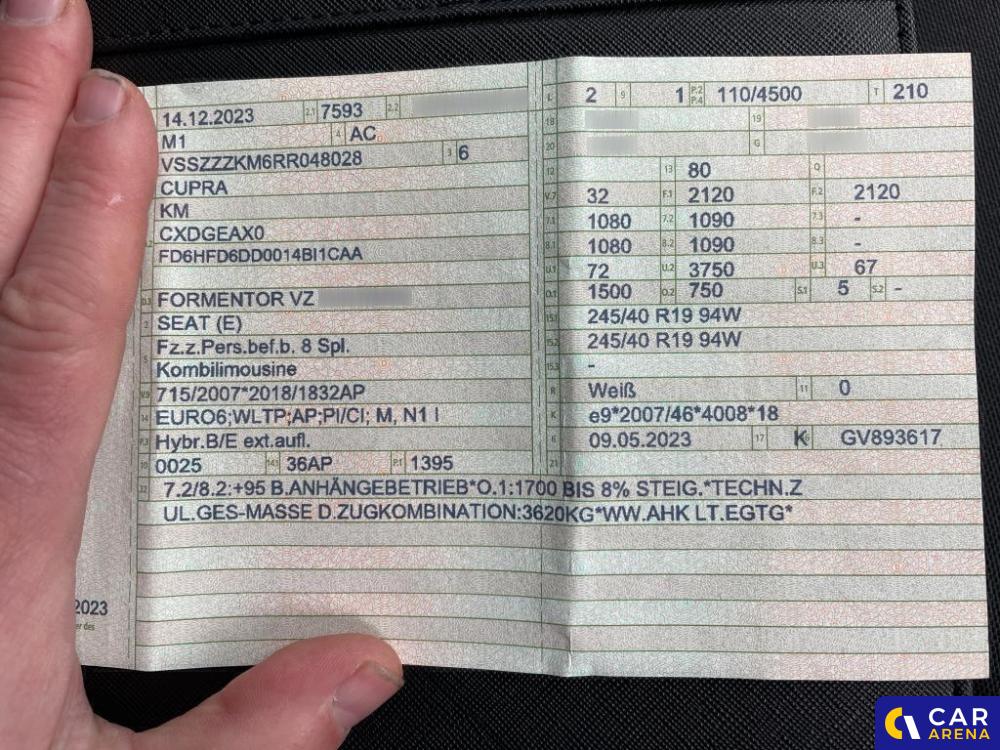 14.12.2023 2.1 7593 2.2
M1 4 AC
VSSZZZKM6RR048028 3 6
CUPRA
KM
CXDGEAX0
FD6HFD6DD0014BI1CAA
D.3 FORMENTOR VZ
2 SEAT (E)
Fz.z.Pers.bef.b. 8 Spl.
5 Kombilimousine
V.9 715/2007*2018/1832AP
14 EURO6;WLTP;AP;PI/CI; M, N1 I
P.3 Hybr.B/E ext.aufl.
10 0025 14.1 36AP P.1 1395
22 7.2/8.2:+95 B.ANHÄNGEBETRIEB*O.1:1700 BIS 8% STEIG.*TECHN.Z
UL.GES-MASSE D.ZUGKOMBINATION:3620KG*WW.AHK LT.EGTG*
L 2 9 1 P.2 P.4 110/4500 T 210
18 19
20 G
12 13 80 Q
V.7 32 F.1 2120 F.2 2120
7.1 1080 7.2 1090 7.3 -
8.1 1080 8.2 1090 8.3 -
U.1 72 U.2 3750 U.3 67
O.1 1500 O.2 750 S.1 5 S.2 -
15.1 245/40 R19 94W
15.2 245/40 R19 94W
15.3 -
R Weiß 11 0
K e9*2007/46*4008*18
6 09.05.2023 17 K GV893617
21
2023
er des
CAR
ARENA